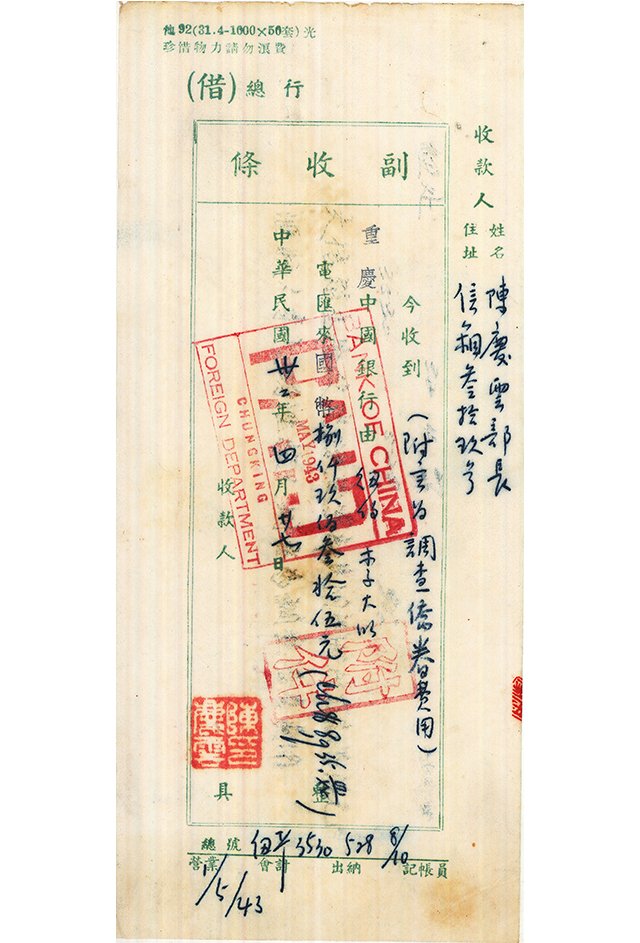 他92(31.4-1000×50套)光
珍惜物力請勿浪費
(借) 總行
副收條
收款人
姓名 陳慶雲部長
住址 信箱叁拾玖号
今收到(附言為調查僑眷費用)
重慶中國銀行由紐約
電匯來國幣捌仟玖佰叁拾伍元整
中華民國卅二年四月廿七日
收款人 具
BANK OF CHINA
PAID
MAY 1943
CHUNGKING
FOREIGN DEPARTMENT
附件
陳印慶雲
總號 3530 528 8/10
營業 會計 出納 記帳員
1/5/43